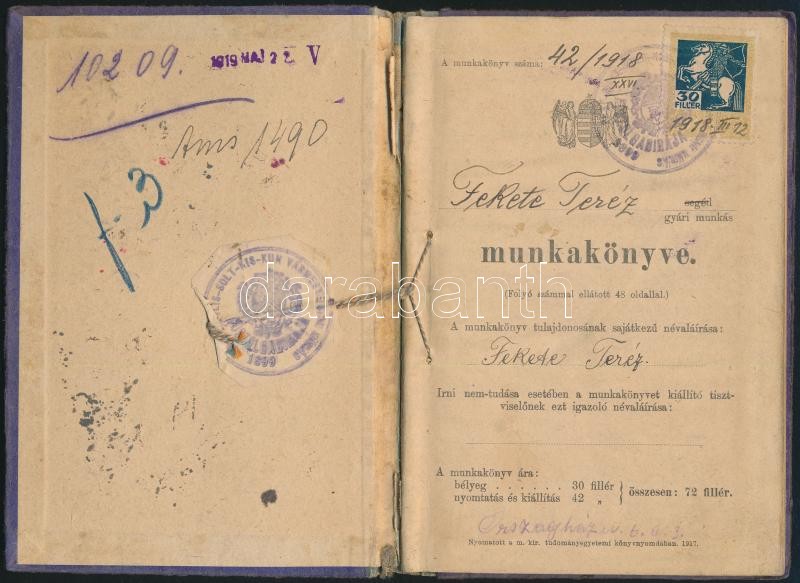 10209.
1919 MÁJ 2 2. V
Ams 1490
1899
darabanth
A munkakönyv száma: 42/1918
XXVI
30
FILLÉR
1918. III 12
Fekete Teréz
segéd
gyári munkás
munkakönyve.
(Folyó számmal ellátott 48 oldallal.)
A munkakönyv tulajdonosának sajátkezű névaláírása:
Fekete Teréz.
Irni nem-tudása esetében a munkakönyvet kiállító tiszt-
viselőnek ezt igazoló névaláírása:
A munkakönyv ára:
bélyeg . . . . . . 30 fillér
nyomtatás és kiállítás 42 „
összesen: 72 fillér.
Nyomatott a m. kir. tudományegyetemi könyvnyomdában. 1917.